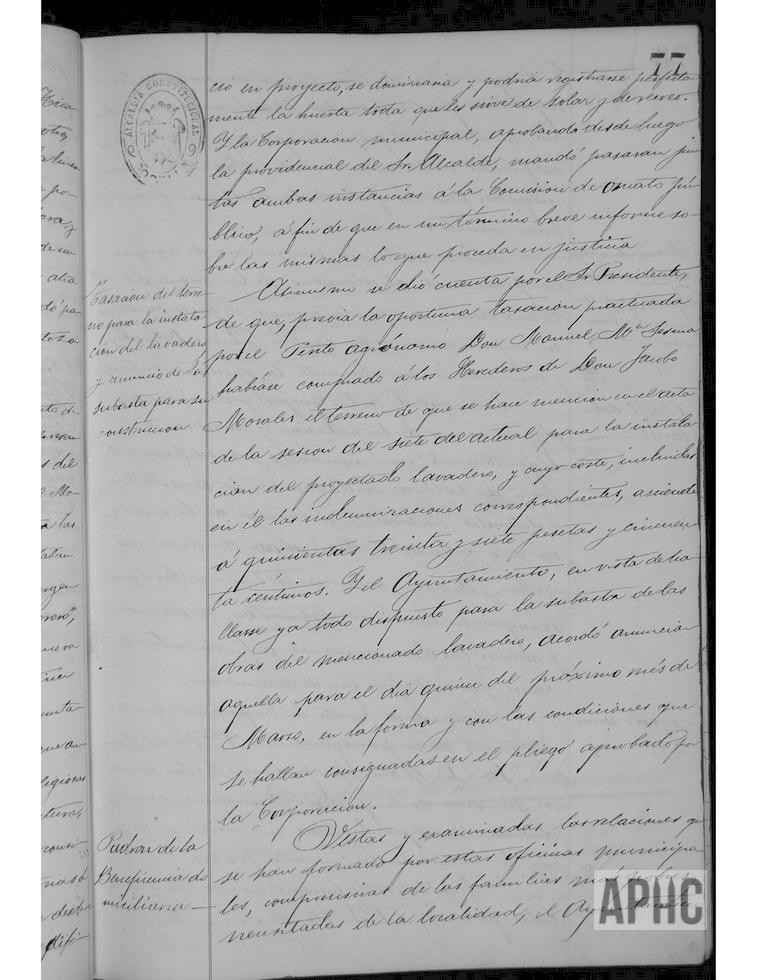 77
ALCALDÍA CONSTITUCIONAL
cio en proyecto, se dominaria y podria registrarse perfecta-
mente la huerta toda que les sirve de solar y de recreo.
Y la Corporacion municipal, aprobando desde luego
la providencia del Sr. Alcalde, mandó pasaran jun-
tas ambas instancias á la Comision de ornato pú-
blico, á fin de que en un término breve informe so-
bre las mismas lo que proceda en justicia
Tasacion del terre-
no para la instala
cion del lavadero
y anuncio de la
subasta para su
construccion
Asimismo se dió cuenta por el Sr. Presidente,
de que, previa la oportuna tasacion practicada
por el Perito agrónomo Don Manuel Mª Serna
habiase comprado á los Herederos de Don Jacobo
Morales el terreno de que se hace mencion en el acta
de la sesion del siete del actual para la instala
cion del proyectado lavadero, y cuyo coste, incluidas
en él las indemnizaciones correspondientes, asciende
á quinientas treinta y siete pesetas y cincuen
ta céntimos. Y el Ayuntamiento, en vista de ha-
llarse ya todo dispuesto para la subasta de las
obras del mencionado lavadero, acordó anunciar
aquella para el dia quince del próximo més de
Marzo, en la forma y con las condiciones que
se hallan consignadas en el pliego aprobado po
la Corporacion.
Padron de la
Beneficencia do
miciliaria
Vistas y examinadas las relaciones qu
se han formado por estas oficinas municipa
les, comprensivas de las familias más pobres
necesitadas de la localidad, el Ayuntamien
APHC